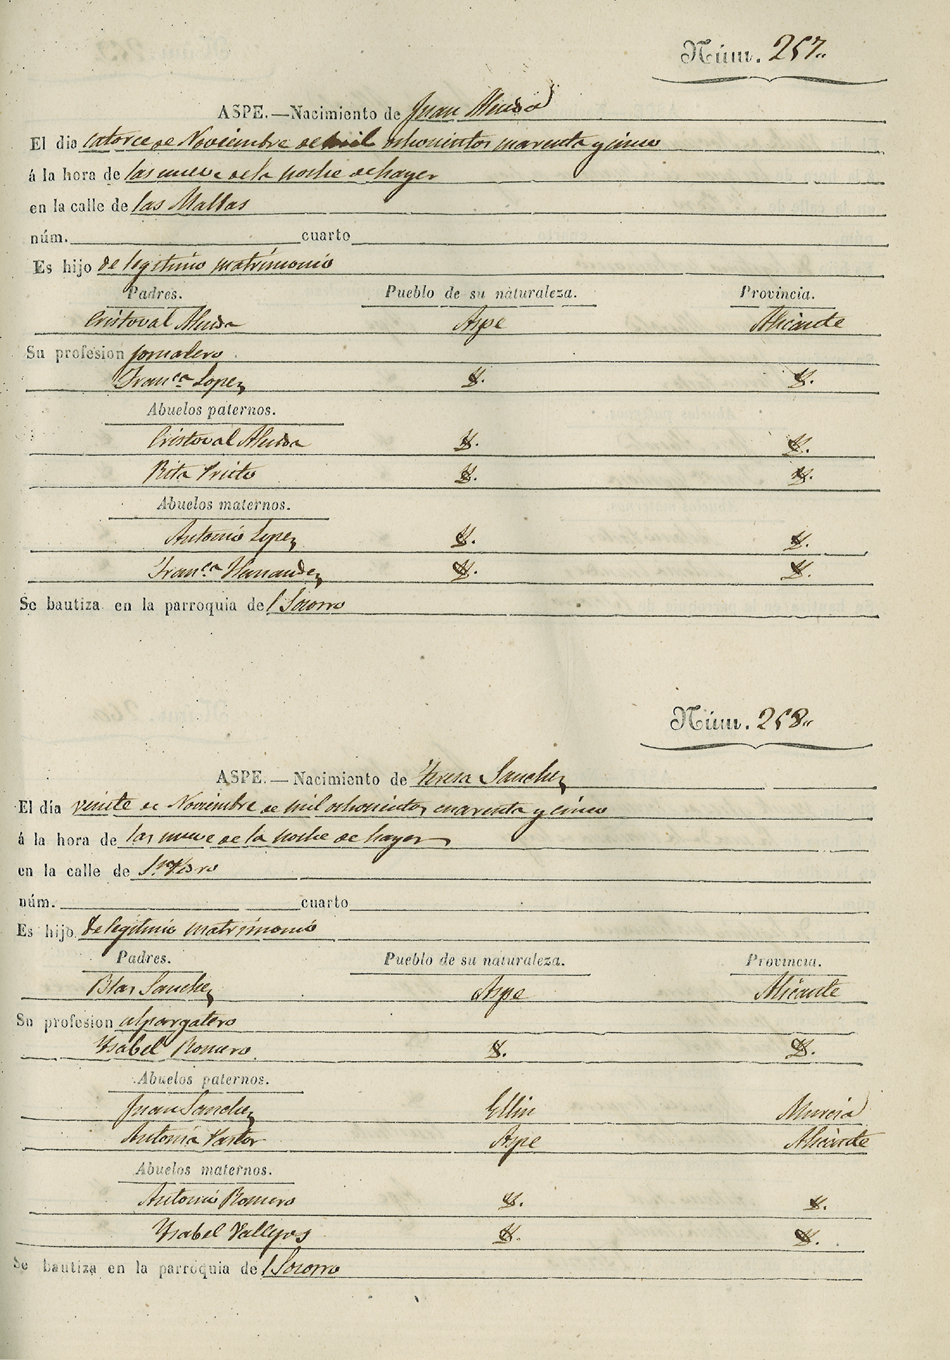 Núm. 257.
ASPE.—Nacimiento de Juan
El dia catorce de Noviembre de mil ochocientos cuarenta y cinco
á la hora de las nueve de la noche de hayer
en la calle de las Mallas
núm. cuarto
Es hijo de legitimo matrimonio
Padres. Pueblo de su naturaleza. Provincia.
Cristoval Aspe Alicante
Su profesion jornalero
Fran.ca Lopez Y. Y.
Abuelos paternos.
Cristoval Y. Y.
Rita Prieto Y. Y.
Abuelos maternos.
Antonio Lopez Y. Y.
Fran.ca Hernandez Y. Y.
Se bautiza en la parroquia del Socorro
Núm. 258.
ASPE.—Nacimiento de Teresa Sanchez
El dia veinte de Noviembre de mil ochocientos cuarenta y cinco
á la hora de las nueve de la noche de hayer
en la calle de Sn Pedro
núm. cuarto
Es hijo de legitimo matrimonio
Padres. Pueblo de su naturaleza. Provincia.
Blas Sanchez Aspe Alicante
Su profesion alpargatero
Ysabel Romero Y. Y.
Abuelos paternos.
Juan Sanchez Ellin Murcia
Antonia Pastor Aspe Alicante
Abuelos maternos.
Antonio Romero Y. Y.
Ysabel Vallejos Y. Y.
Se bautiza en la parroquia del Socorro